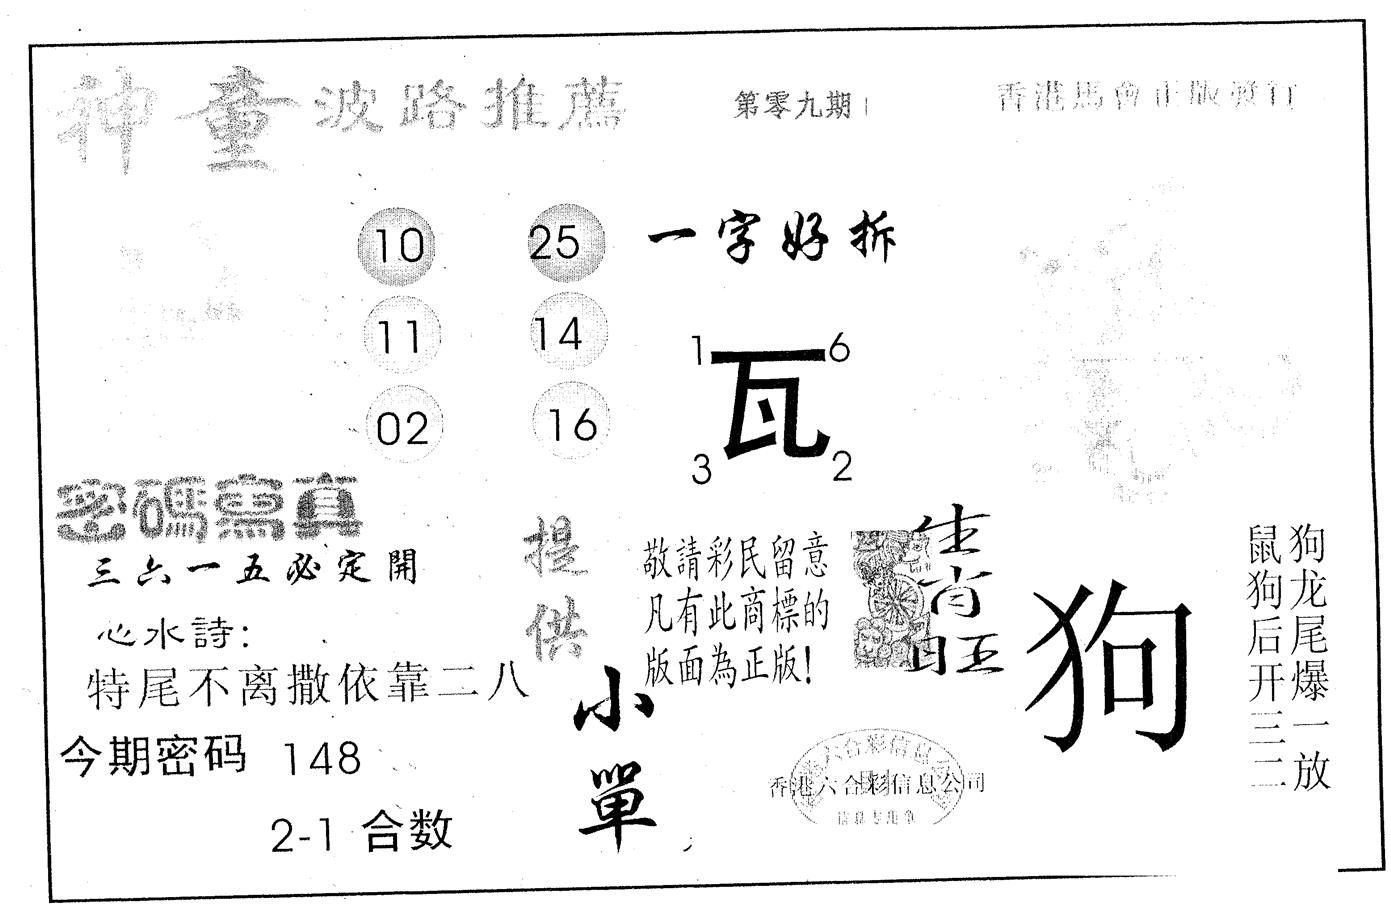 神童波路推薦
第零九期
香港馬會正版發行
10 25
11 14
02 16
一字好拆
1 6
瓦
3 2
密碼寫真
三六一五必定開
心水詩:
特尾不离撒依靠二八
今期密码 148
2-1 合数
提供
小單
敬請彩民留意
凡有此商標的
版面為正版!
生肖旺
狗
狗龙尾爆一放
鼠狗后开三二
香港六合彩信息公司